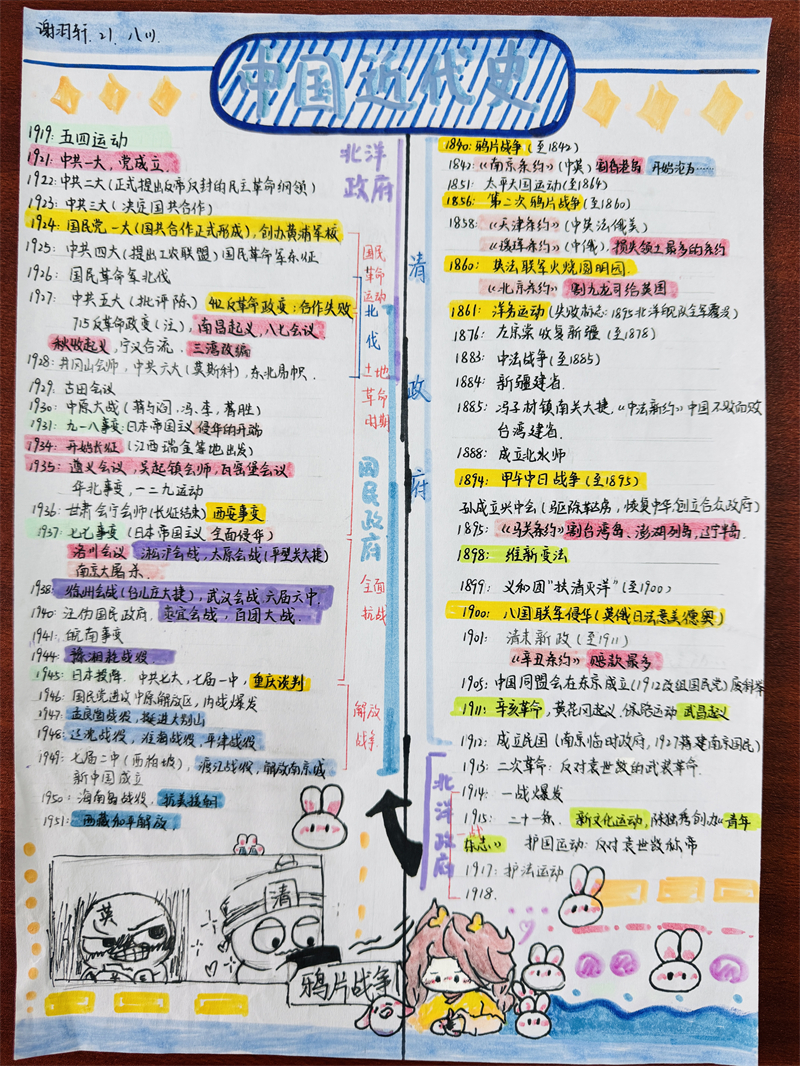 谢羽轩.21.八(1).
中国近代史
1919: 五四运动
1921: 中共一大, 党成立.
1922: 中共二大(正式提出反帝反封的民主革命纲领)
1923: 中共三大(决定国共合作)
1924: 国民党一大(国共合作正式形成), 创办黄埔军校
1925: 中共四大(提出工农联盟)国民革命军东征
1926: 国民革命军北伐
1927: 中共五大(批评陈) 412反革命政变: 合作失败
715反革命政变(汪), 南昌起义, 八七会议
秋收起义, 宁汉合流. 三湾改编
1928: 井冈山会师, 中共六大(莫斯科), 东北易帜.
1929: 古田会议
1930: 中原大战(蒋与阎、冯、李, 蒋胜)
1931: 九一八事变: 日本帝国主义侵华的开端
1934: 开始长征(江西瑞金等地出发)
1935: 遵义会议, 吴起镇会师, 瓦窑堡会议
华北事变, 一二九运动
1936: 甘肃会宁会师(长征结束) 西安事变
1937: 七七事变(日本帝国主义 全面侵华)
洛川会议 淞沪会战, 太原会战(平型关大捷)
南京大屠杀.
1938: 徐州会战(台儿庄大捷), 武汉会战, 六届六中.
1940: 汪伪国民政府. 枣宜会战, 百团大战.
1941: 皖南事变
1944: 豫湘桂战役
1945: 日本投降. 中共七大, 七届一中, 重庆谈判
1946: 国民党进攻中原解放区, 内战爆发
1947: 孟良崮战役, 挺进大别山
1948: 辽沈战役, 淮海战役, 平津战役
1949: 七届二中(西柏坡), 渡江战役, 解放南京城
新中国成立
1950: 海南岛战役, 抗美援朝
1951: 西藏和平解放,
北洋
政府
国民
革命
运动
北
伐
土地
革命
时期
国民政府
全面
抗战
解放
战争
清
政
府
1840: 鸦片战争(至1842)
1842: 《南京条约》(中英) 割香港岛 开始沦为……
1851: 太平天国运动(至1864)
1856: 第二次鸦片战争(至1860)
1858: 《天津条约》(中英法俄美)
《瑷珲条约》(中俄), 损失领土最多的条约
1860: 英法联军火烧圆明园.
《北京条约》 割九龙司给英国
1861: 洋务运动(失败标志: 1895北洋舰队全军覆没)
1876: 左宗棠收复新疆(至1878)
1883: 中法战争(至1885)
1884: 新疆建省.
1885: 冯子材镇南关大捷, 《中法新约》中国不败而败
台湾建省.
1888: 成立北水师
1894: 甲午中日战争(至1895)
孙成立兴中会(驱除鞑虏, 恢复中华, 创立合众政府)
1895: 《马关条约》割台湾岛、澎湖列岛, 辽宁半岛.
1898: 维新变法
1899: 义和团"扶清灭洋"(至1900)
1900: 八国联军侵华(英俄日法意美德奥)
1901: 清末新政(至1911)
《辛丑条约》 赔款最多
1905: 中国同盟会在东京成立(1912改组国民党)废科举
1911: 辛亥革命, 黄花冈起义, 保路运动 武昌起义
1912: 成立民国(南京临时政府, 1927蒋建南京国民)
1913: 二次革命: 反对袁世凯的武装革命.
1914: 一战爆发
1915: 二十一条、 新文化运动, 陈独秀创办《青年
杂志》 护国运动: 反对袁世凯称帝
1917: 护法运动
1918.
北洋政府
一战
英
清
鸦片战争